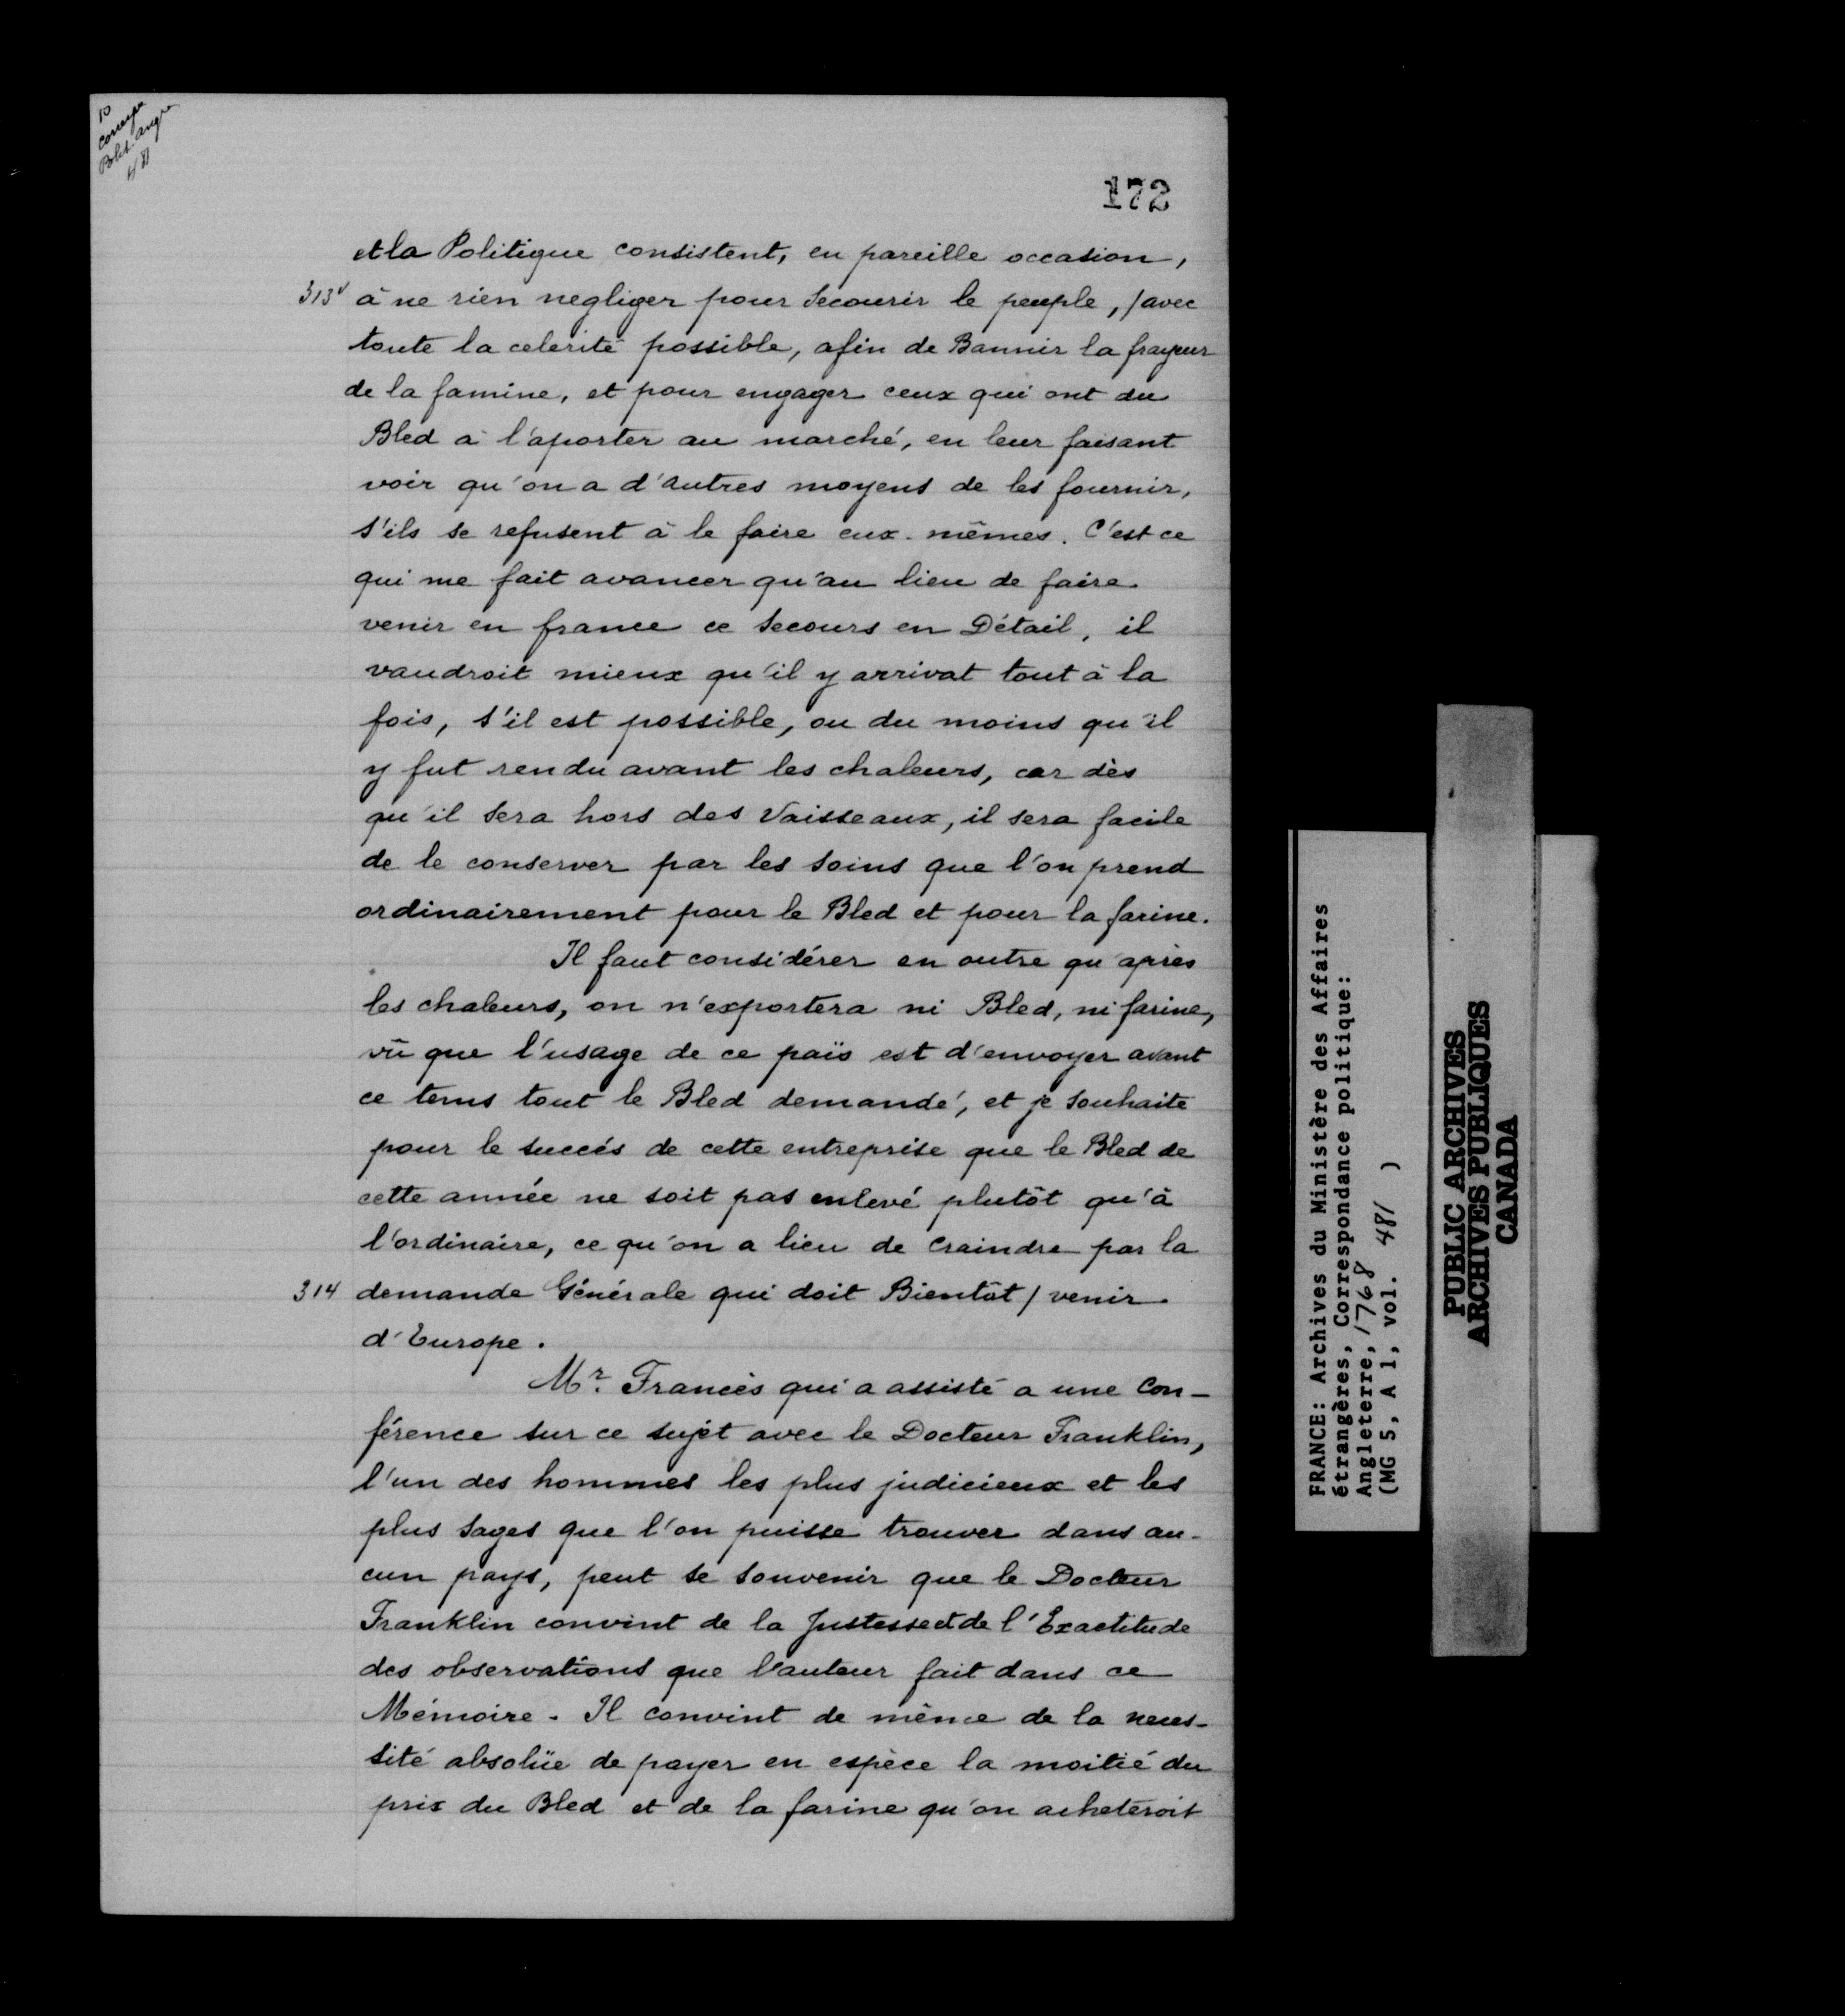 10
Corresp
Polit. Ang
481
172
et la Politique consistent, en pareille occasion,
313v à ne rien negliger pour secourir le peuple, / avec
toute la celerité possible, afin de Bannir la frayeur
de la famine, et pour engager ceux qui ont du
Bled à l'aporter au marché, en leur faisant
voir qu'on a d'autres moyens de les fournir,
s'ils se refusent à le faire eux-mêmes. C'est ce
qui me fait avancer qu'au lieu de faire
venir en france ce secours en Détail, il
vaudroit mieux qu'il y arrivat tout à la
fois, s'il est possible, ou du moins qu'il
y fut rendu avant les chaleurs, car dès
qu'il sera hors des Vaisseaux, il sera facile
de le conserver par les soins que l'on prend
ordinairement pour le Bled et pour la farine.
Il faut considérer en outre qu'après
les chaleurs, on n'exportera ni Bled, ni farine,
vû que l'usage de ce païs est d'envoyer avant
ce tems tout le Bled demandé, et je souhaite
pour le succés de cette entreprise que le Bled de
cette année ne soit pas enlevé plutôt qu'à
l'ordinaire, ce qu'on a lieu de craindre par la
314 demande Générale qui doit Bientôt / venir
d'Europe.
Mr. Francès qui a assisté a une Con-
férence sur ce sujèt avec le Docteur Franklin,
l'un des hommes les plus judicieux et les
plus sages que l'on puisse trouver dans au-
cun pays, peut se souvenir que le Docteur
Franklin convint de la Justesse et de l'Exactitude
des observations que l'auteur fait dans ce
Mémoire. Il convint de même de la neces-
sité absolüe de payer en espèce la moitié du
prix du Bled et de la farine qu'on acheteroit
FRANCE: Archives du Ministère des Affaires
étrangères, Correspondance politique:
Angleterre, 1768
(MG 5, A 1, vol. 481 )
PUBLIC ARCHIVES
ARCHIVES PUBLIQUES
CANADA